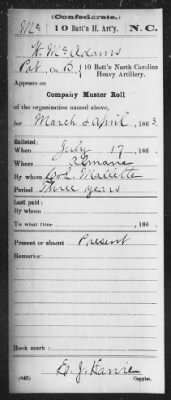 (Confederate.)
Mc | 10 Batt'n H. Art'y. | N. C.
W. McAdams
Pvt, Co. B, 10 Batt'n North Carolina Heavy Artillery.
Appears on
Company Muster Roll
of the organization named above,
for March & April, 1863.
Enlisted:
When July 17, 186 .
Where
By whom Col.
Period Three years
Last paid:
By whom
To what time , 186 .
Present or absent Present
Remarks:
Book mark:
E. J.
(642) Copyist.